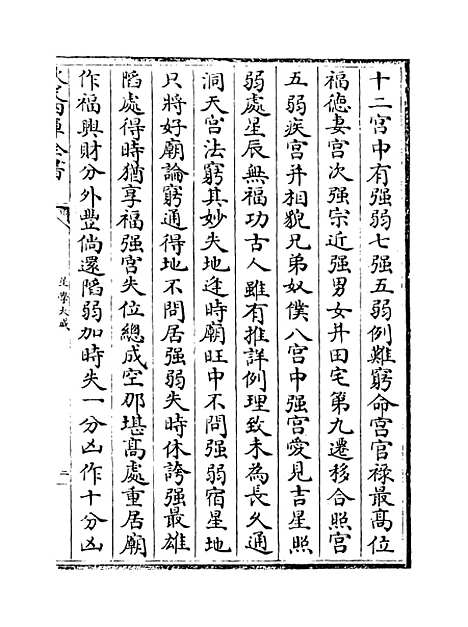 十二宮中有强弱七强五弱例難窮命宮官禄最髙位
福德妻宮次强宗近强男女并田宅第九遷移合照宮
五弱疾宮并相貌兄弟奴僕八宮中强宮愛見吉星照
弱處星辰無福功古人雖有推詳例理致未為長久通
洞天宮法窮其妙失地逢時廟旺中不問强弱宿星地
只將好廟論窮通得地不問居强弱失時休誇强最雄
䧟處得時猶享福强宮失位總成空那堪髙處重居廟
作福興財分外豐倘還䧟弱加時失一分凶作十分凶
星學大成